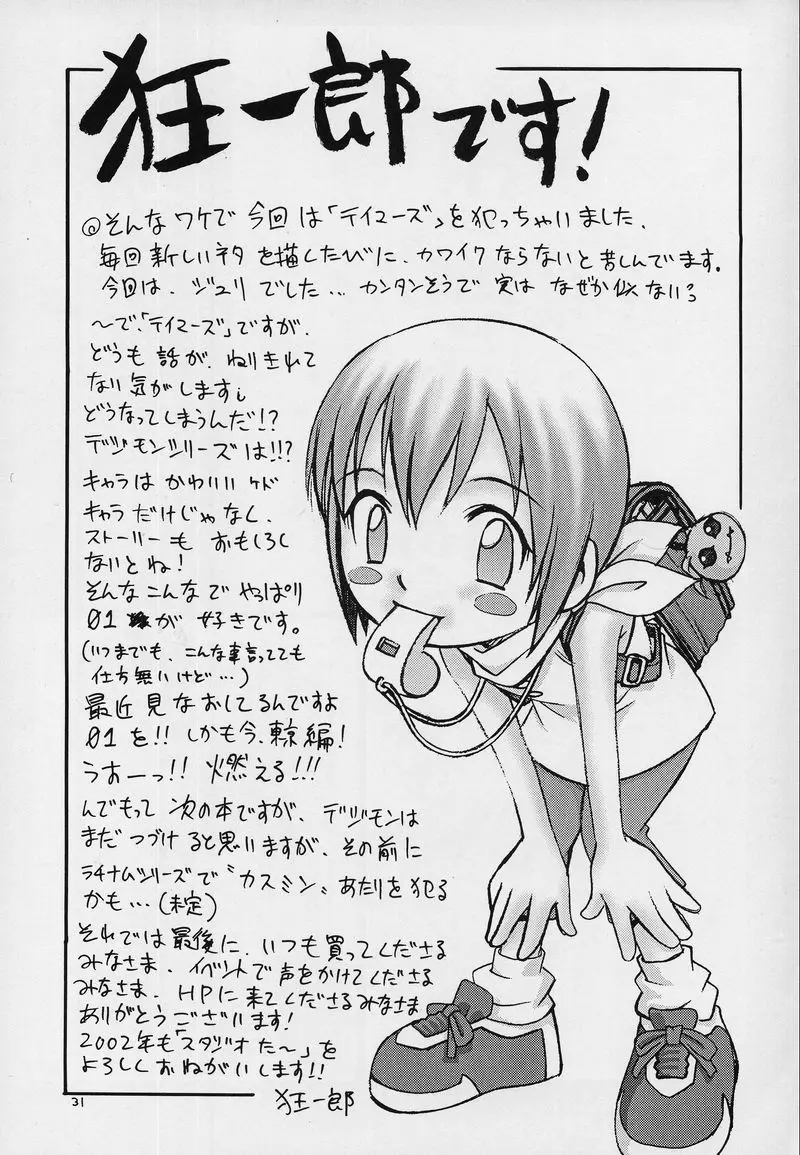 狂一郎です!
@そんなワケで今回は「テイマーズ」を犯っちゃいました、
毎回新しいネタを描くたびに、カワイクならないと苦しんでます。
今回は、ジュリでした…カンタンそうで実はなぜか似ない?
〜で、「テイマーズ」ですが、
どうも話が、ねりきれて
ない気がします。
どうなってしまうんだ!?
デジモンシリーズは!!?
キャラはかわいいケド
キャラだけじゃなく、
ストーリーもおもしろく
ないとね!
そんなこんなでやっぱり
01が好きです。
(いつまでも、こんな事言ってても
仕方無いけど…)
最近見なおしてるんですよ
01を!!しかも今、東京編!
うおーっ!!燃える!!!
んでもって次の本ですが、デジモンは
まだつづけると思いますが、その前に
ラチナムシリーズで〝カスミン〟あたりを犯る
かも…(未定)
それでは最後に、いつも買ってくださる
みなさま、イベントで声をかけてくださる
みなさま、HPに来てくださるみなさま
ありがとうございます!
2002年も「スタジオた〜」を
よろしくおねがいします!!
狂一郎
31